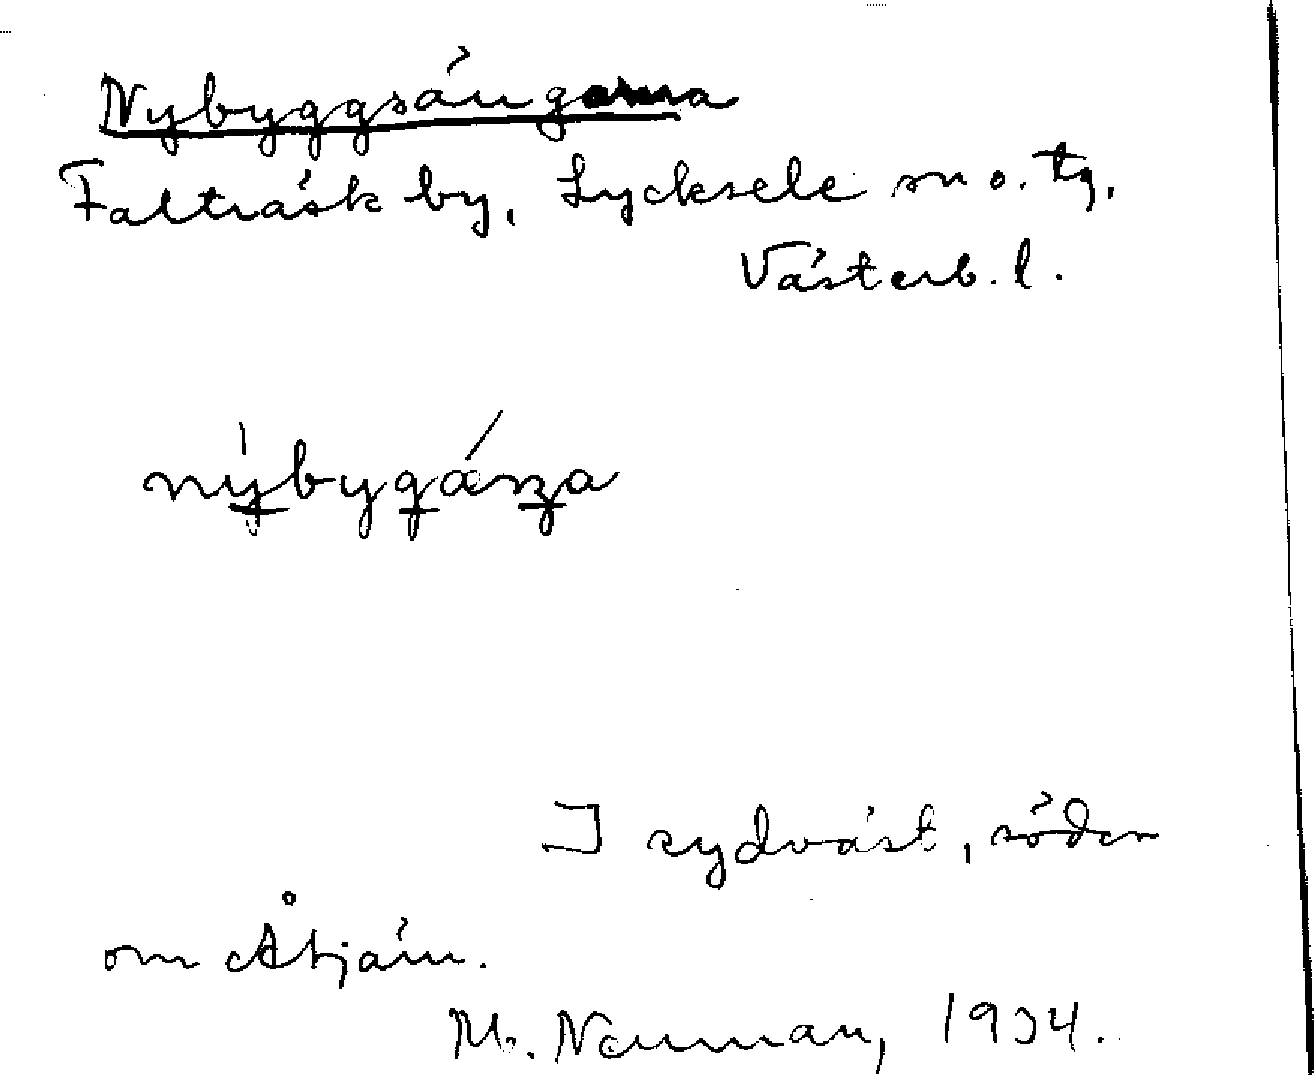 Nybyggsängarna
Falträsk by, Lycksele sn o. tg,
Västerb. l.
nýbygäŋa
I sydväst, söder
om Åtjärn.
M. Nauman, 1934.